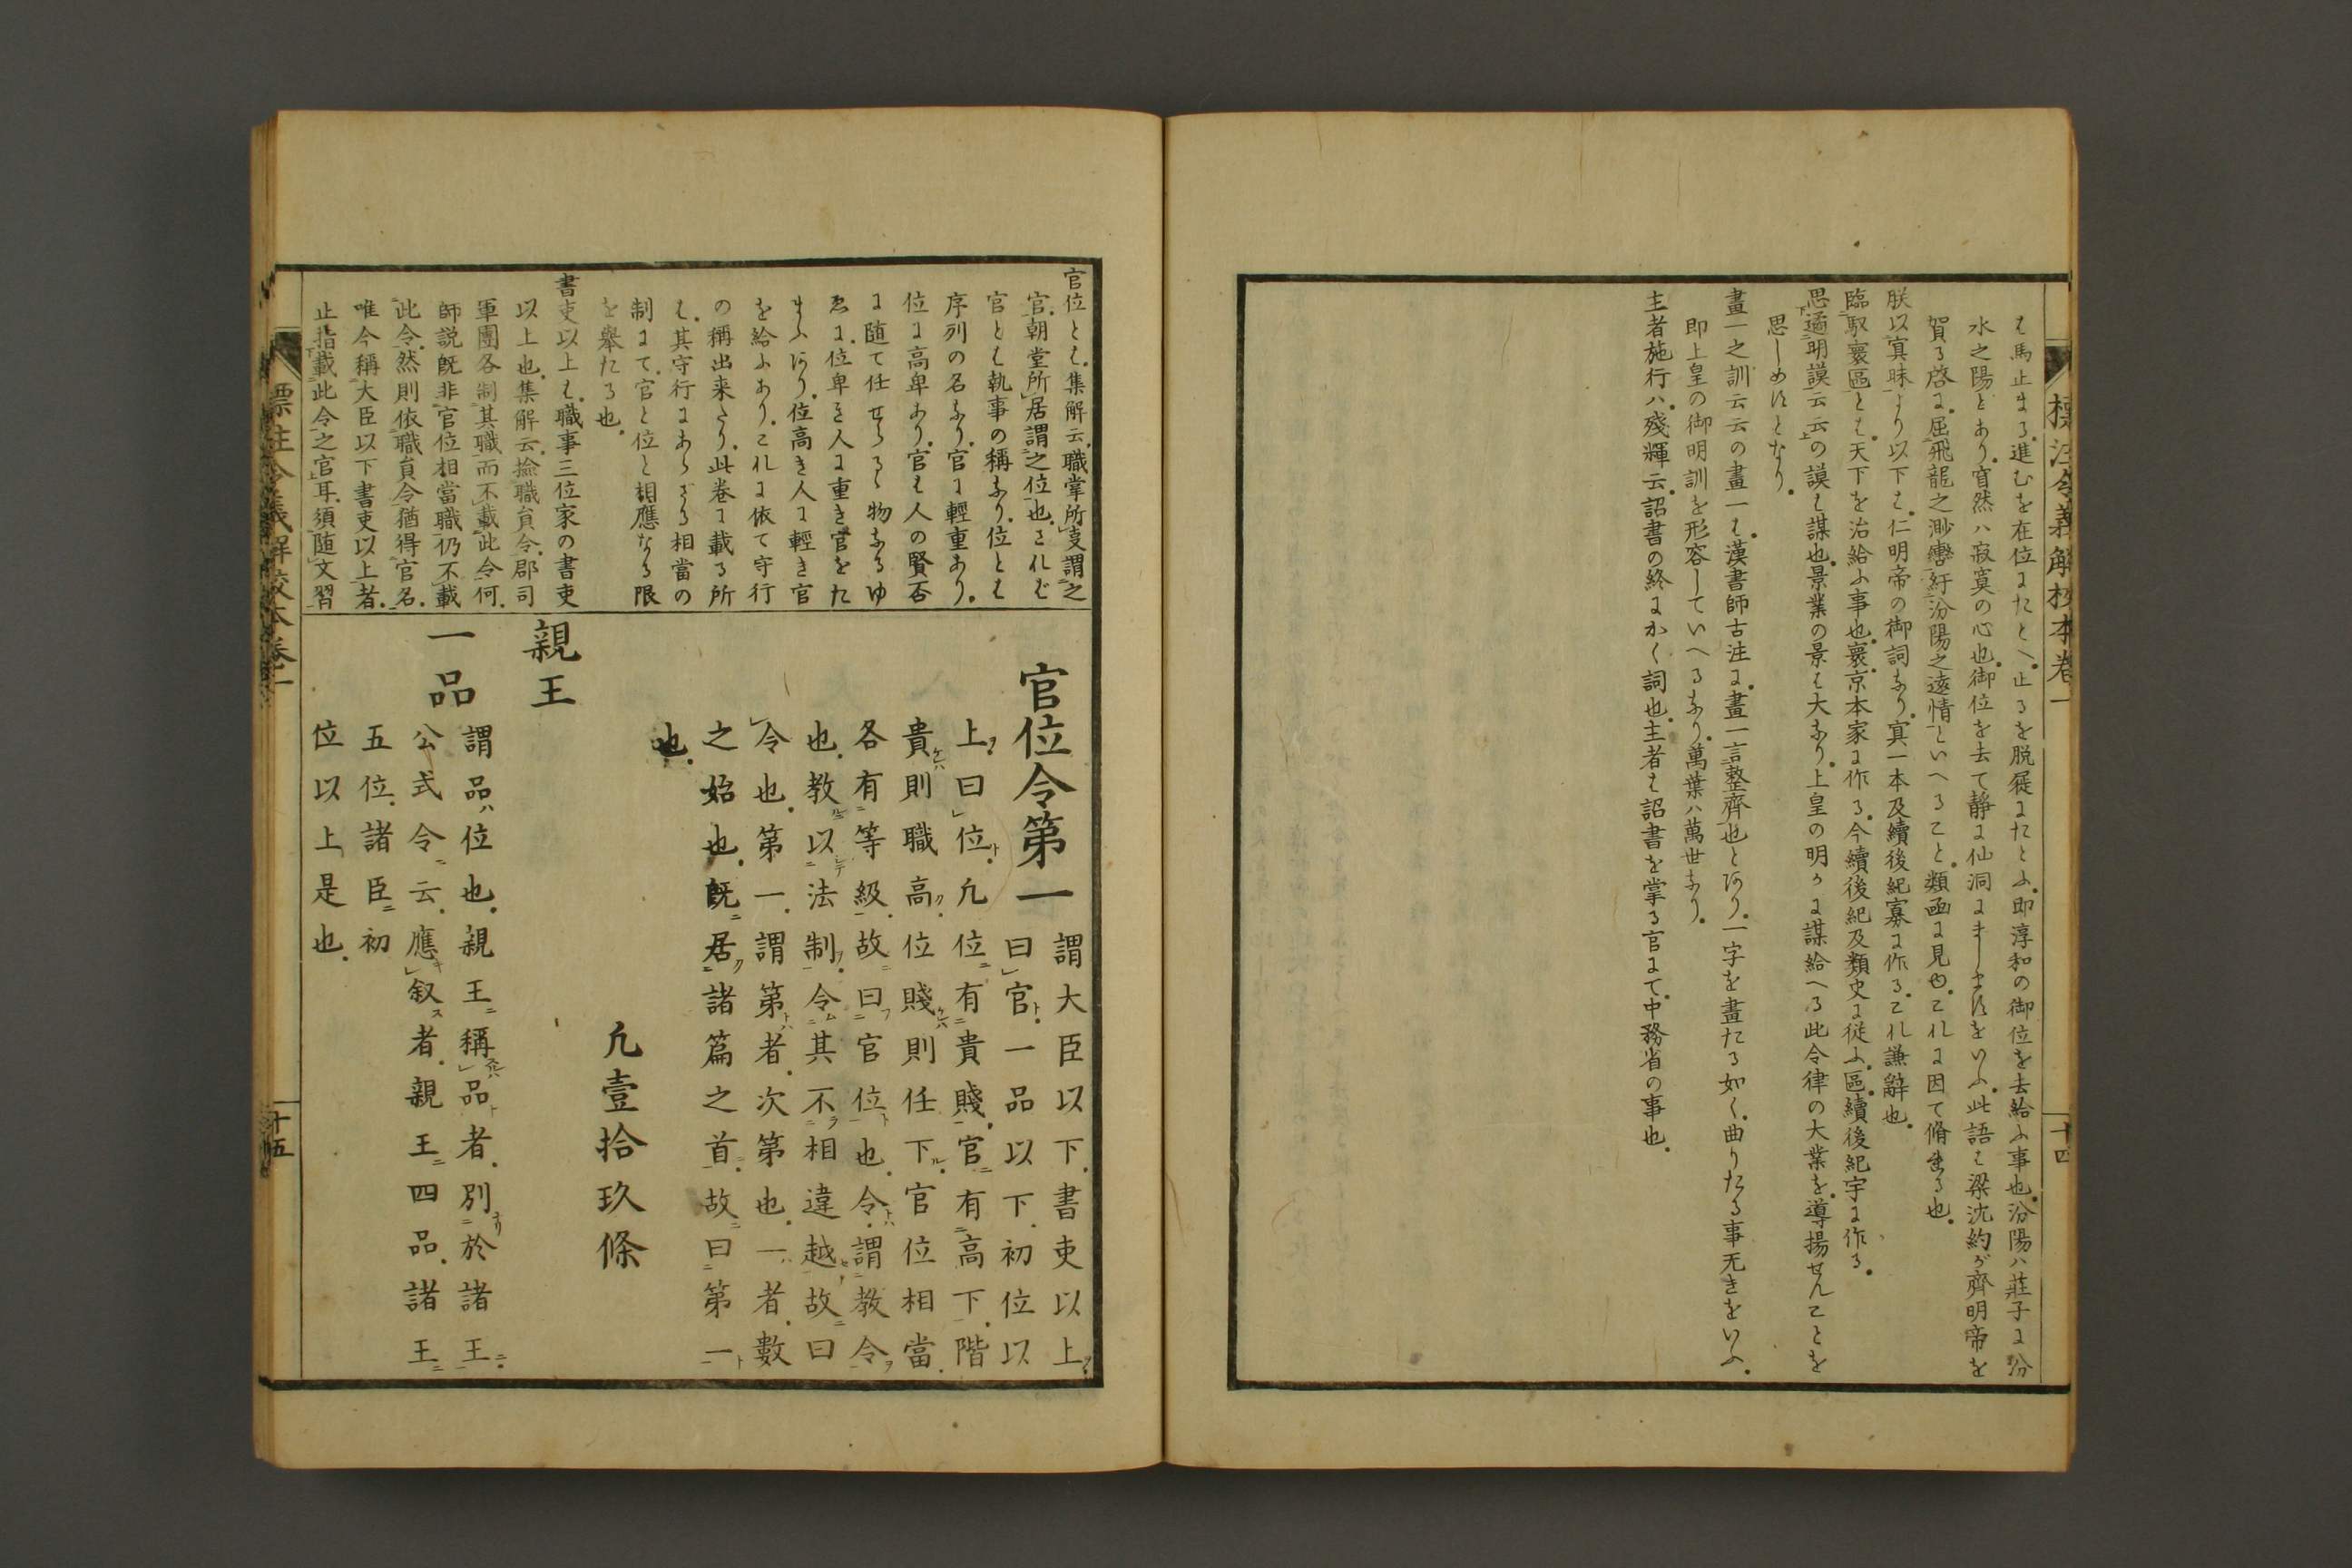 標注令義解校本巻一
十四
は馬止まる進むを在位にたとへ。止るを脱屣にたとふ。即淳和の御位を去給ふ事也。汾陽ハ莊子に汾
水之陽とあり。窅然ハ寂寞の心也。御位を去て静に仙洞にましますをいふ。此語は梁沈約が齊明帝を
賀る啓に。屈飛龍之渺轡紆汾陽之遠情といへること。類函に見ゆ。これに因て脩せる也。
朕以寘昧より以下は。仁明帝の御詞なり。寘一本及續後紀寡に作る。これ謙辭也。
臨馭寰區とは。天下を治給ふ事也。寰。京本家に作る。今續後紀及類史に従ふ。區。續後紀宇に作る。
思遹明謨云云の謨は謀也。景業の景は大なり。上皇の明かに謀給へる此令律の大業を。導揚せんことを
思しめすとなり。
畫一之訓云云の畫一は。漢書師古注に。畫一言整齊也とあり。一字を畫たる如く。曲りたる事无きをいふ。
即上皇の御明訓を形容していへるなり。萬葉ハ萬世なり。
主者施行ハ。殘輝云。詔書の終にかく詞也。主者は詔書を掌る官にて。中務省の事也。
官位とは。集解云。職掌所支謂之
官。朝堂所居謂之位也。されば
官とは執事の稱なり。位とは
序列の名なり。官に輕重あり。
位に高卑あり。官は人の賢否
に随て任せらるゝ物なるゆ
ゑに。位卑き人に重き官をた
まふあり。位高き人に輕き官
を給ふあり。これに依て守行
の稱出来たり。此巻に載る所
は。其守行にあらざる相當の
制にて。官と位と相應なる限
を舉たる也。
書吏以上は。職事三位家の書吏
以上也。集解云。撿職員令。郡司
軍團各制其職而不載此令何。
師説既非官位相當職仍不載
此令。然則依職員令猶得官名。
唯今稱大臣以下書吏以上者。
止指載此令之官耳。須随文習
官位令第一
謂大臣以下。書吏以上
曰官。一品以下。初位以
上曰位。凡位有貴賤。官有高下。階
貴則職高。位賤則任下。官位相當。
各有等級。故曰官位也。令。謂教令
也。教以法制。令其不相違越。故曰
令也。第一。謂第者。次第也。一者。數
之始也。既居諸篇之首。故曰第一
也。
凡壹拾玖條
親王
一品
謂品。位也。親王稱品者。別於諸王。
公式令云。應叙者。親王四品。諸王
五位。諸臣初
位以上是也。
標注令義解校本巻一
十五